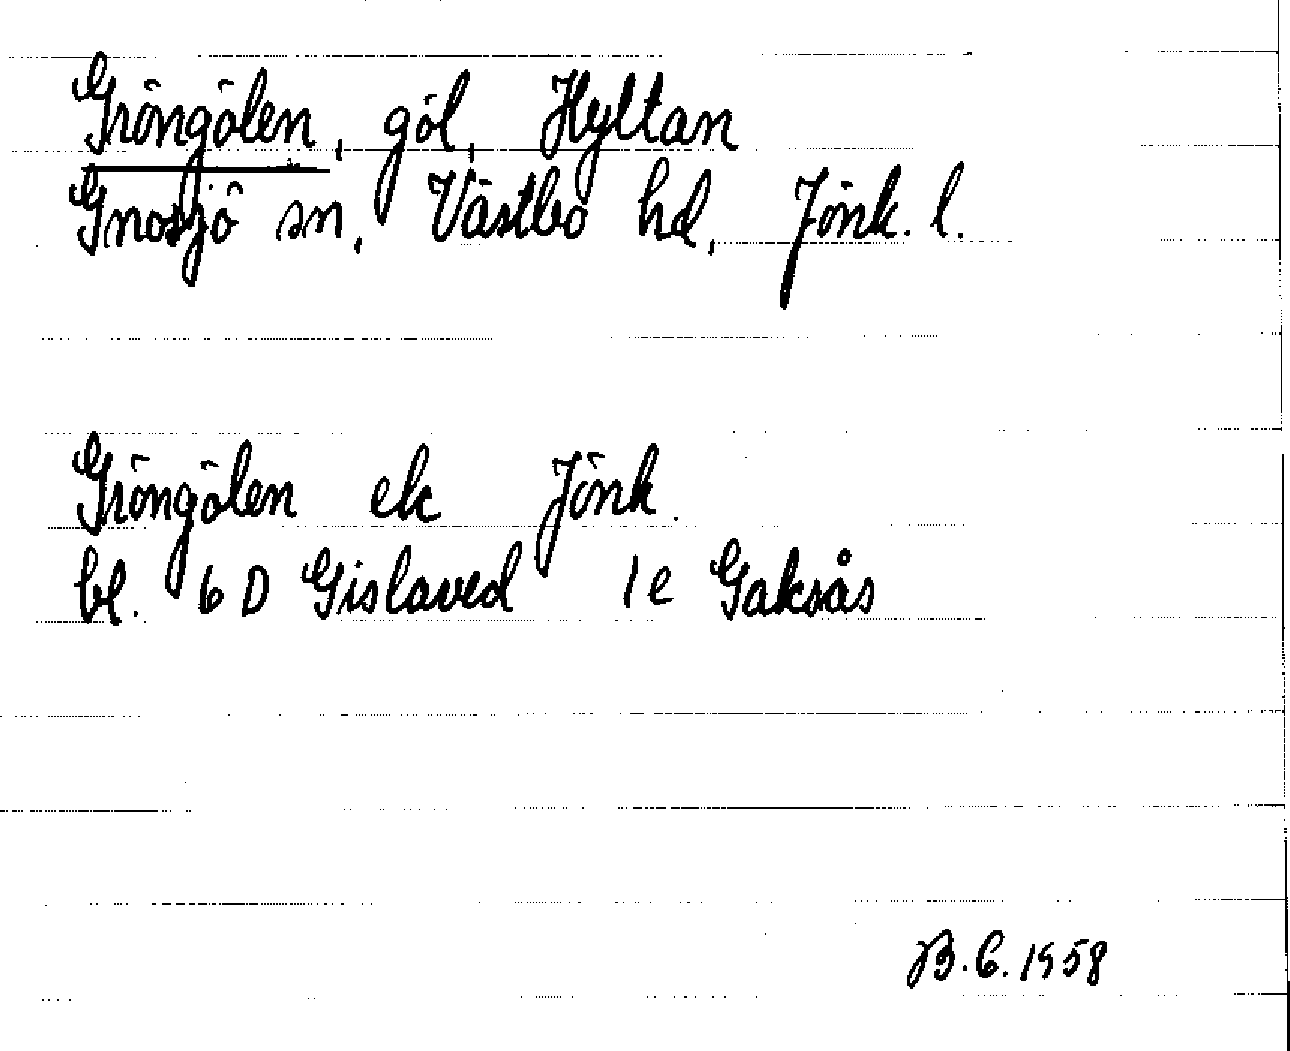 Gröngölen, göl, Hyltan
Gnosjö sn, Västbo hd, Jönk. l.
Gröngölen ek Jönk.
bl. 6 D Gislaved 1e Gaksås
B.C. 1958